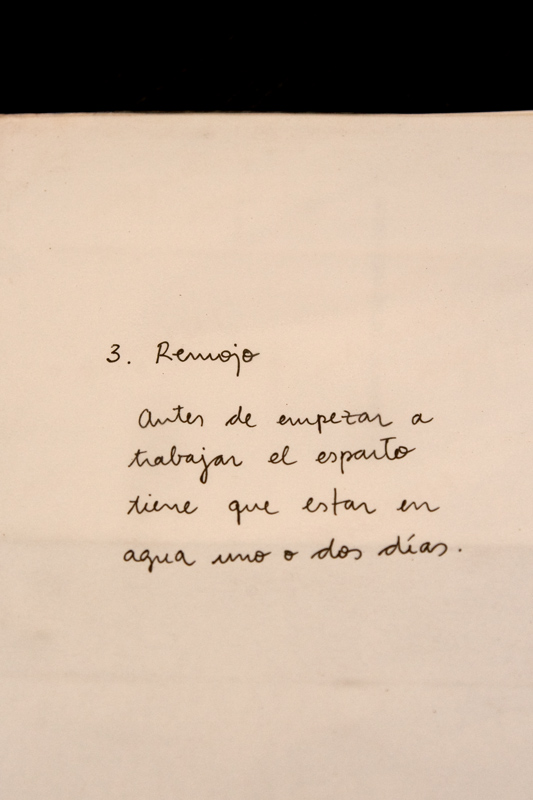 3. Remojo
Antes de empezar a
trabajar el esparto
tiene que estar en
agua uno o dos días.